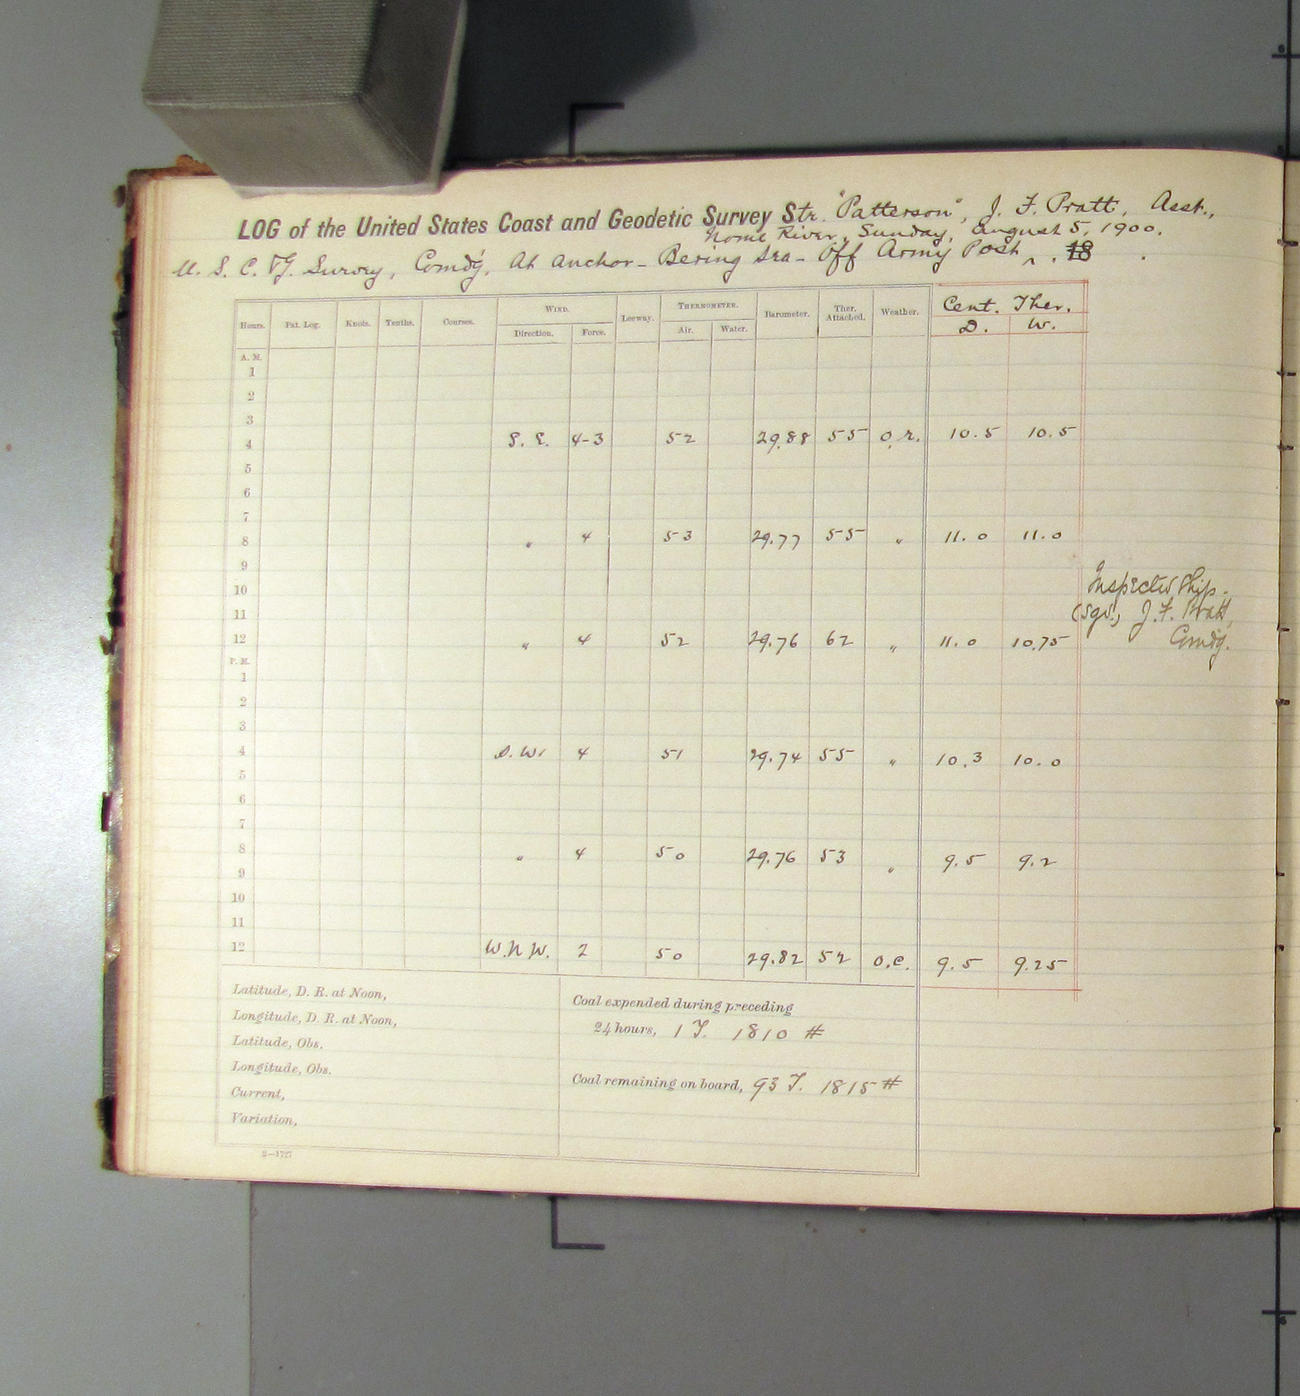 LOG of the United States Coast and Geodetic Survey Str. "Patterson", J. F. Pratt, Asst.,
Nome River, Sunday, August 5, 1900.
U. S. C. & G. Survey, Comdg, At anchor - Bering Sea - Off Army Post ^ . 18
Hours. Pat. Log. Knots. Tenths. Courses. WIND. Leeway. THERMOMETER. Barometer. Ther. Attached. Weather. Cent. Ther.
Direction. Force. Air. Water. D. W.
A. M.
1
2
3
4 S. E. 4-3 52 29.88 55 o,r. 10.5 10.5
5
6
7
8 " 4 53 29.77 55 " 11.0 11.0
9
10 Inspected Ship.
11 (Sgd.) J. F. Pratt,
12 " 4 52 29.76 62 " 11.0 10.75 Comdg.
P. M.
1
2
3
4 S. W. 4 51 29.74 55 " 10.3 10.0
5
6
7
8 " 4 50 29.76 53 " 9.5 9.2
9
10
11
12 W.N.W. 2 50 29.82 52 o.c. 9.5 9.25
Latitude, D. R. at Noon,
Longitude, D. R. at Noon,
Latitude, Obs.
Longitude, Obs.
Current,
Variation,
Coal expended during preceding
24 hours, 1 T. 1810 #
Coal remaining on board, 93 T. 1815 #